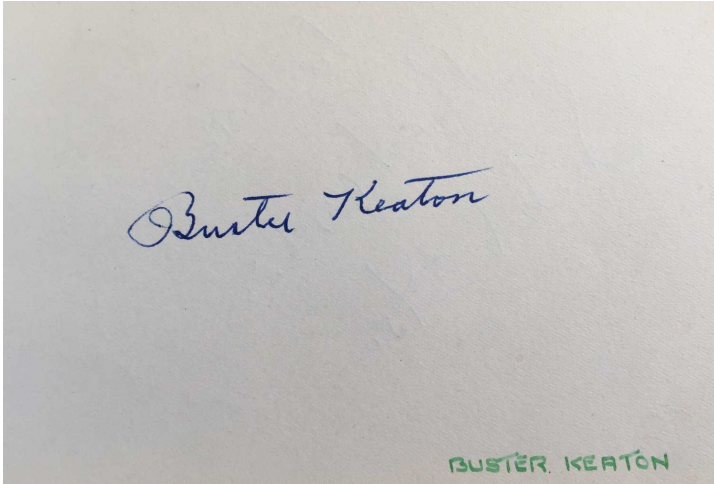 Buster Keaton
BUSTER. KEATON